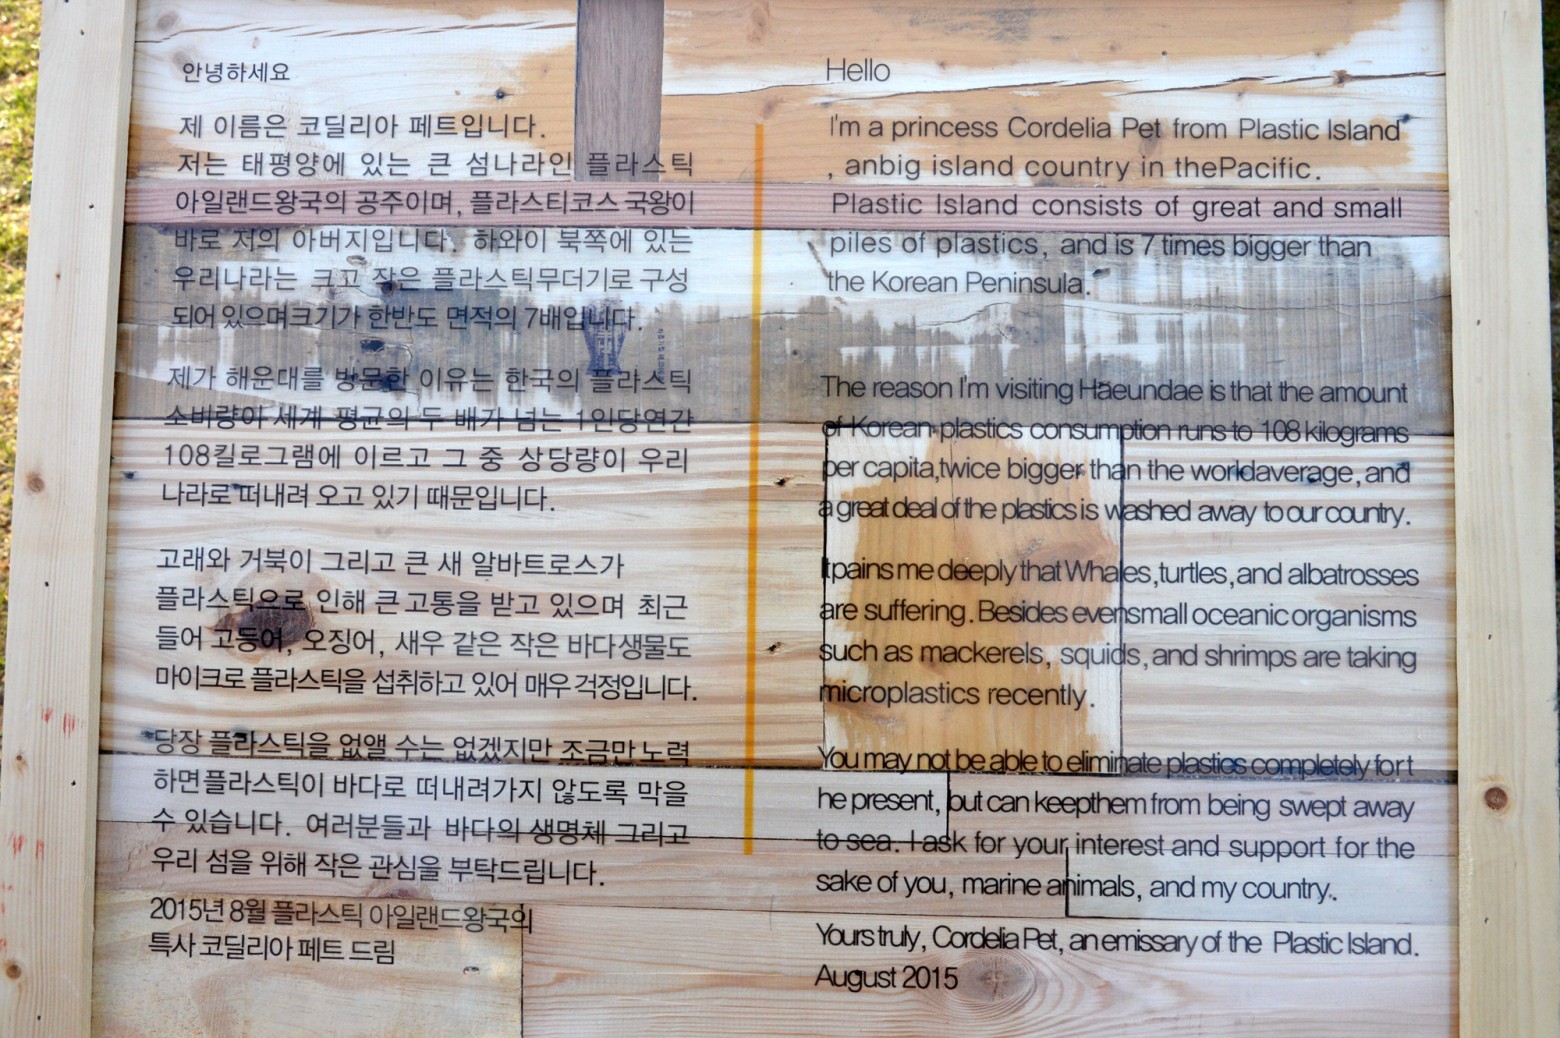 안녕하세요
제 이름은 코딜리아 페트입니다.
저는 태평양에 있는 큰 섬나라인 플라스틱
아일랜드왕국의 공주이며, 플라스티코스 국왕이
바로 저의 아버지입니다. 하와이 북쪽에 있는
우리나라는 크고 작은 플라스틱무더기로 구성
되어 있으며크기가 한반도 면적의 7배입니다.
제가 해운대를 방문한 이유는 한국의 플라스틱
소비량이 세계 평균의 두 배가 넘는 1인당연간
108킬로그램에 이르고 그 중 상당량이 우리
나라로 떠내려 오고 있기 때문입니다.
고래와 거북이 그리고 큰 새 알바트로스가
플라스틱으로 인해 큰고통을 받고 있으며 최근
들어 고등어, 오징어, 새우 같은 작은 바다생물도
마이크로 플라스틱을 섭취하고 있어 매우 걱정입니다.
당장 플라스틱을 없앨 수는 없겠지만 조금만 노력
하면 플라스틱이 바다로 떠내려가지 않도록 막을
수 있습니다. 여러분들과 바다의 생명체 그리고
우리 섬을 위해 작은 관심을 부탁드립니다.
2015년 8월 플라스틱 아일랜드왕국의
특사 코딜리아 페트 드림
Hello
I'm a princess Cordelia Pet from Plastic Island
, anbig island country in thePacific.
Plastic Island consists of great and small
piles of plastics, and is 7 times bigger than
the Korean Peninsula.
The reason I'm visiting Haeundae is that the amount
of Korean plastics consumption runs to 108 kilograms
per capita,twice bigger than the worldaverage, and
a great deal of the plastics is washed away to our country.
It pains me deeply that Whales,turtles,and albatrosses
are suffering. Besides evensmall oceanic organisms
such as mackerels, squids, and shrimps are taking
microplastics recently.
You may not be able to eliminate plastics completely for t
he present, but can keepthem from being swept away
to sea. I ask for your interest and support for the
sake of you, marine animals, and my country.
Yours truly, Cordelia Pet, an emissary of the Plastic Island.
August 2015